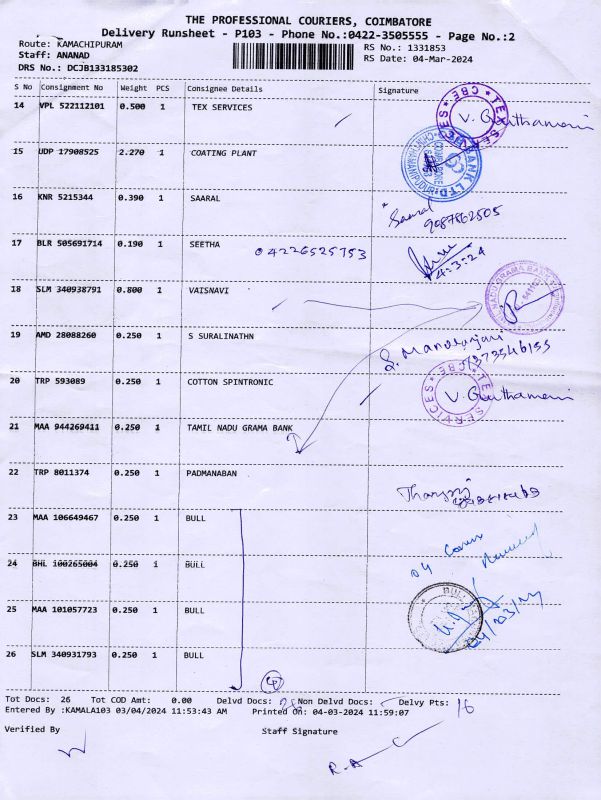 THE PROFESSIONAL COURIERS, COIMBATORE
Delivery Runsheet - P103 - Phone No.:0422-3505555 - Page No.:2
Route: KAMACHIPURAM
RS No.: 1331853
Staff: ANANAD
RS Date: 04-Mar-2024
DRS No.: DCJB133185302
S No Consignment No Weight PCS Consignee Details Signature
14 VPL 522112101 0.500 1 TEX SERVICES
TEX SERVICES CBE
15 UDP 17908525 2.270 1 COATING PLANT
BANK LTD
16 KNR 5215344 0.390 1 SAARAL
Saaral
9087862505
17 BLR 505691714 0.190 1 SEETHA 04226525753
4-3-24
18 SLM 340938791 0.800 1 VAISNAVI
TAMIL NADU GRAMA BANK
19 AMD 28088260 0.250 1 S SURALINATHN
S. Manoranjani
20 TRP 593089 0.250 1 COTTON SPINTRONIC
TEX SERVICES CBE
21 MAA 944269411 0.250 1 TAMIL NADU GRAMA BANK
22 TRP 8011374 0.250 1 PADMANABAN
23 MAA 106649467 0.250 1 BULL
24 BHL 100265004 0.250 1 BULL
04 Covers
Received
25 MAA 101057723 0.250 1 BULL
BULL
04/03/24
26 SLM 340931793 0.250 1 BULL
4
Tot Docs: 26 Tot COD Amt: 0.00 Delvd Docs: Non Delvd Docs: Delvy Pts: 16
Entered By :KAMALA103 03/04/2024 11:53:43 AM Printed On: 04-03-2024 11:59:07
Verified By Staff Signature
R.A